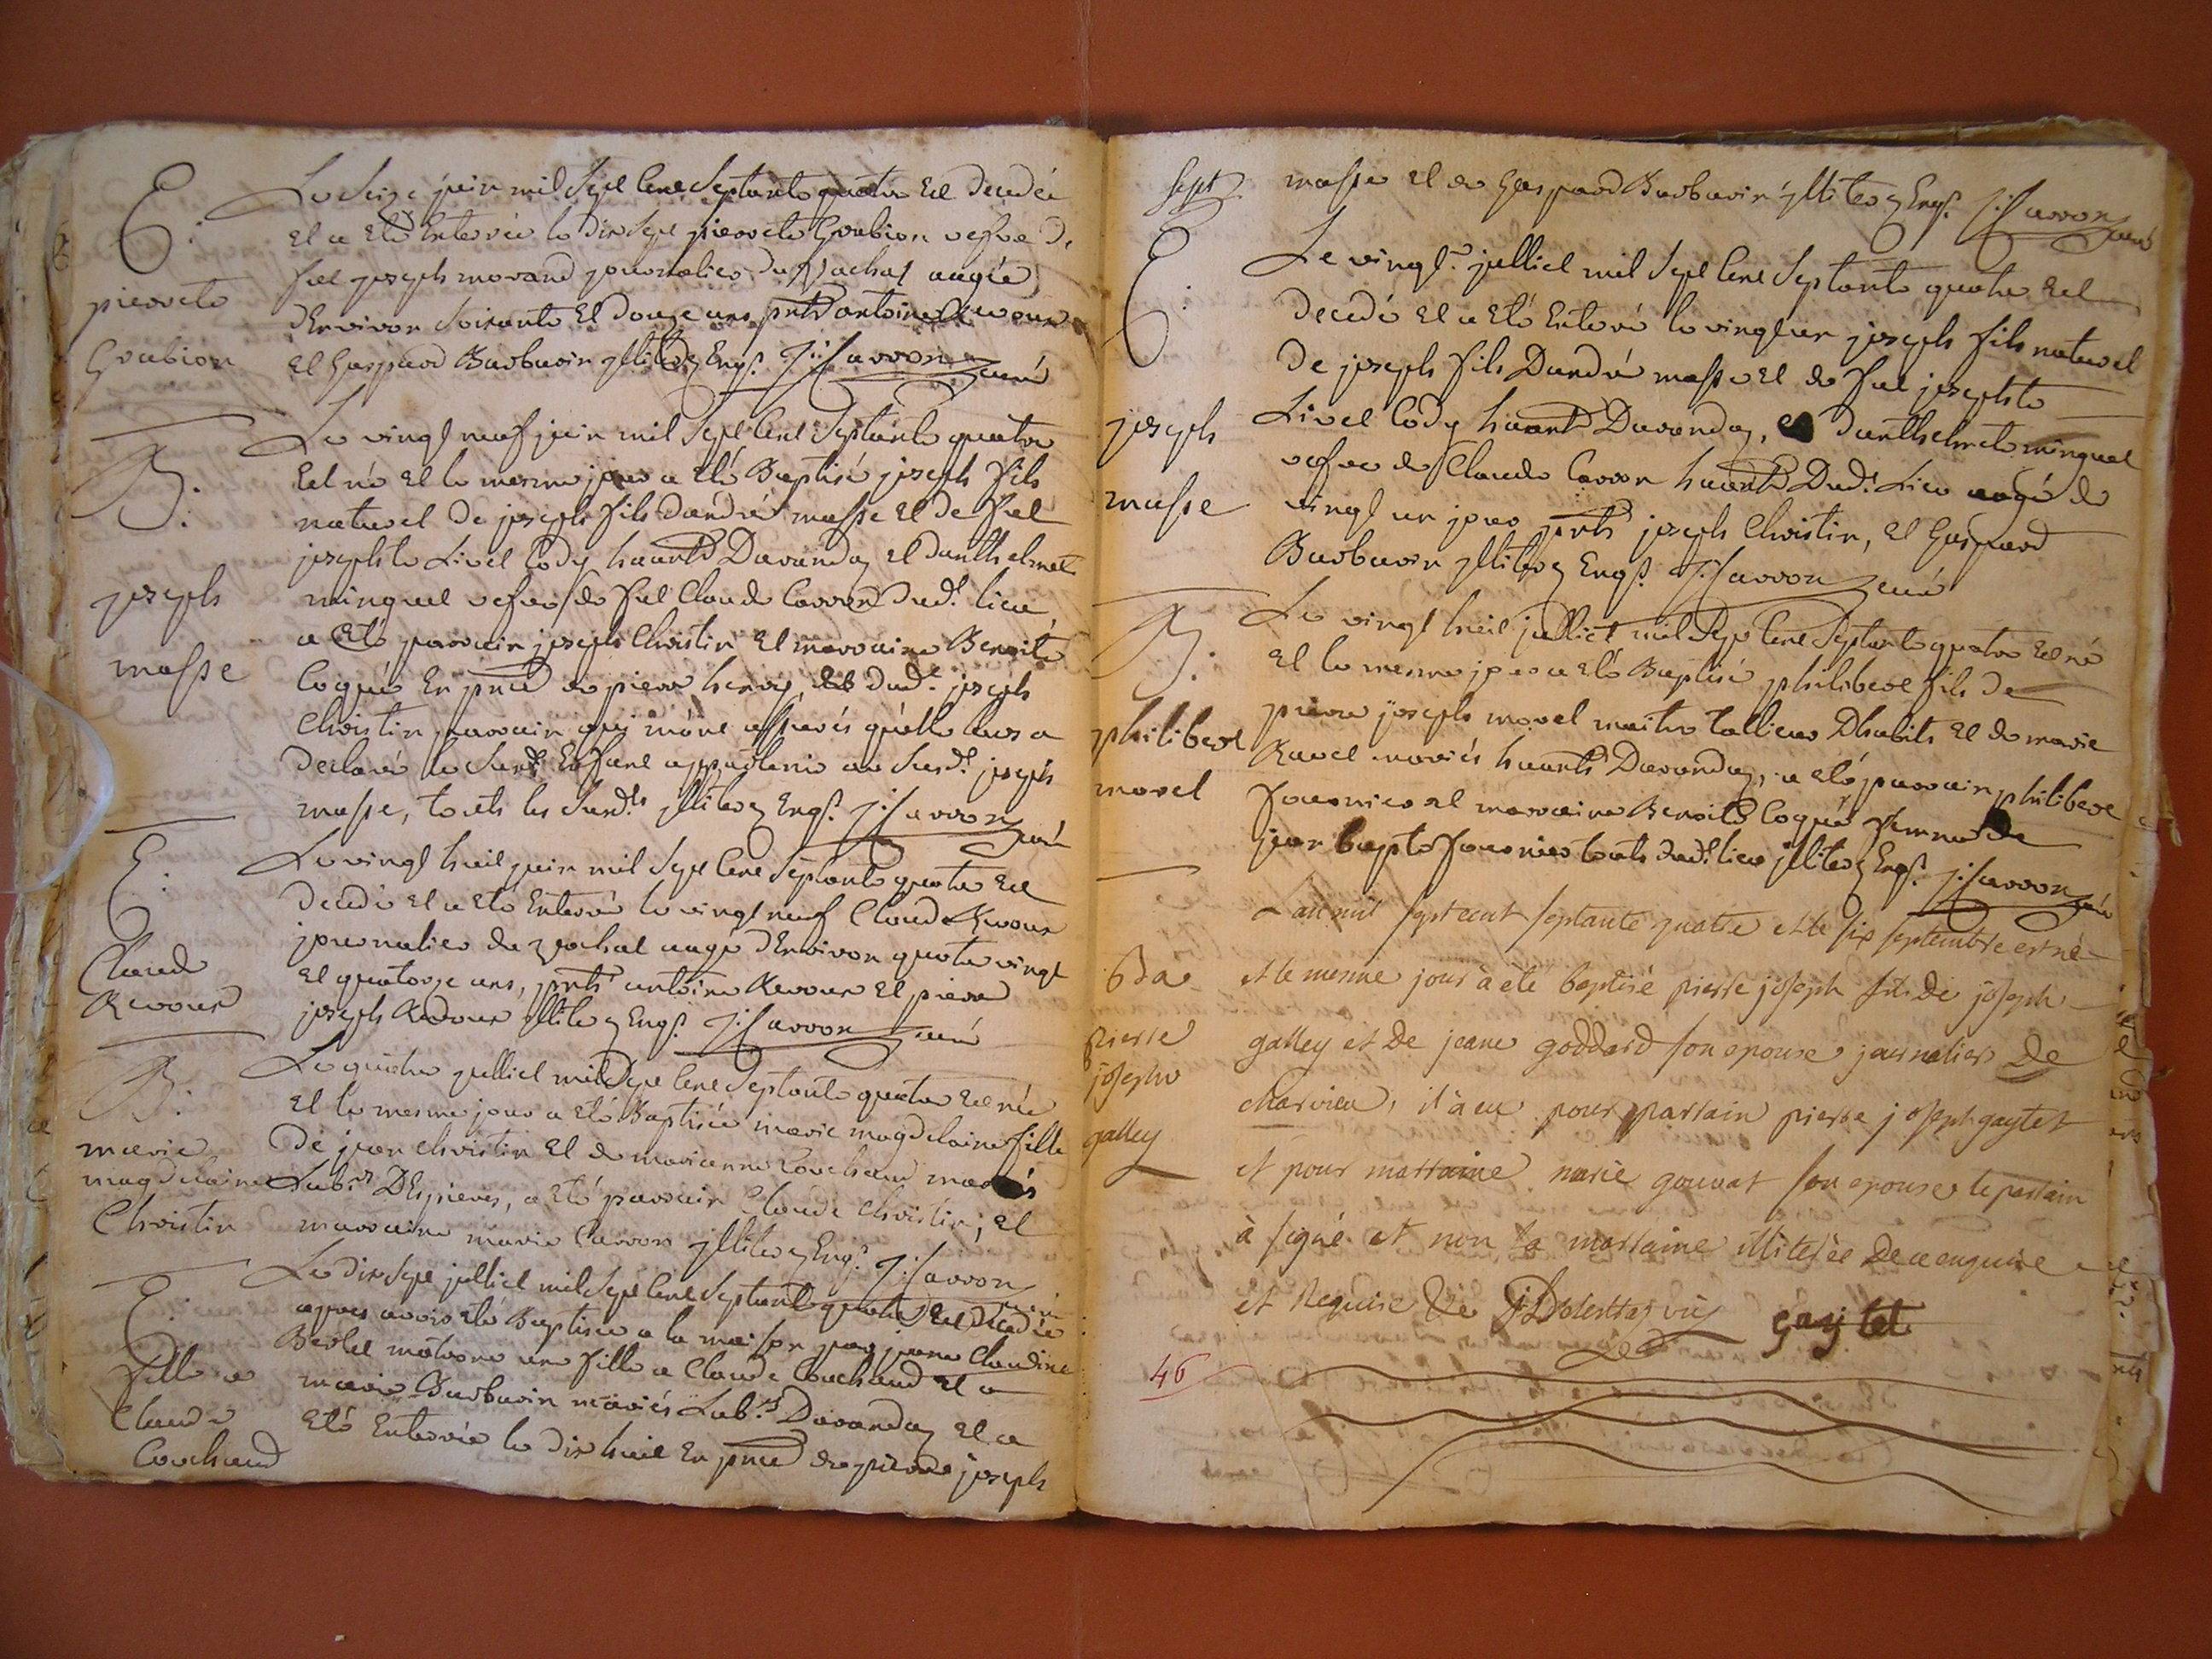 E.
pierrete
Grabion
Le Seize juin mil Sept Cent Septante quatre Est Decedée
Et a Eté Enterrée le dix Sept pierrete Grabion vefve de
feu joseph morand journalier du Nachat aagée
dEnviron Soixante Et douze ans prnts antoine Revour
Et Gaspard Barbarin illiterez Engs. J: Carron Curé
B.
joseph
masse
Le vingt neuf juin mil Sept Cent Septante quatre
Est né Et le mesme jour a Eté Baptisé joseph fils
naturel de joseph fils dandré masse Et de feu
josephte Livet Cody haants Davanday Et danthelmete
minguet vefve de feu Claude Carron dudt. lieu
a Eté parrain joseph Christin Et marraine Benoite
Coqué En pnce de pierre henry, dudt. joseph
Christin parrain qui mónt assurés quelle leur a
declaré le Susdt. Enfant appartenir au Susdt. joseph
masse, touts les Susdts illiterez Engs. J: Carron Curé
E.
Claude
Revour
Le vingt huit juin mil Sept Cent Septante quatre Est
decedé Et a Eté Enterré le vingt neuf Claude Revour
journalier du Nachat aagé dEnviron quatre vingt
Et quatorze ans, prnts antoine Revour Et pierre
joseph Revour illiterez Engs. J: Carron Curé
B.
marie
magdelaine
Christin
Le quatre julliet mil Sept Cent Septante quatre Est née
Et le mesme jour a Eté Baptisée marie magdelaine fille
de jean christin Et de marianne Couchaud mariés
Labrs DEspieres, a Eté parrain Claude Christin, Et
marraine marie Carron illiterez Engs. J: Carron Curé
E.
fille a
Claude
Couchaud
Le dix Sept julliet mil Sept Cent Septante quatre Est Decedée
apres avoir Eté Baptisée a la maison par jeane Claudine
Bertet matrone une fille a Claude Couchaud Et a
marie Barbarin mariés Labrs Davanday Et a
Eté Enterrée le dix huit En pnce de pierre joseph
Sept
masse Et de Gaspard Barbarin illiterez Engs. J: Carron Curé
E.
joseph
masse
Le vingt julliet mil Sept Cent Septante quatre Est
Decedé Et a Eté Enterré le vingt un joseph fils naturel
de joseph fils Dandré masse Et de feu josephte
Livet Cody haants Davanday, danthelmete minguet
vefve de Claude Carron haants Dudt. Lieu aagé de
vingt un jour prnts joseph Christin, Et Gaspard
Barbarin illiterez Engs. J: Carron Curé
B.
philibert
morel
Le vingt huit julliet mil Sept Cent Septante quatre Est né
Et le mesme jour a Eté Baptisé philibert fils de
pierre joseph morel maitre tallieur Dhabits Et de marie
Ravet mariés haants Davanday, a Eté parrain philibert
fournier Et marraine Benoite Coqué femme de
jean bapte fournier touts dudt. lieu illiterez Engs. J: Carron Curé
Ba
pierre
joseph
galley
L'an mil sept cent septante quatre et le six septembre est né
et le mesme jour à eté baptisé pierre joseph fils de joseph
galley et de jeane goddard son epouse journaliers de
charvieu, il à eu pour parrain pierre joseph gaytet
et pour marraine marie gouvat son epouse le parrain
à signé et non la marraine illiterée de ce enquise
et requise gaytet
46